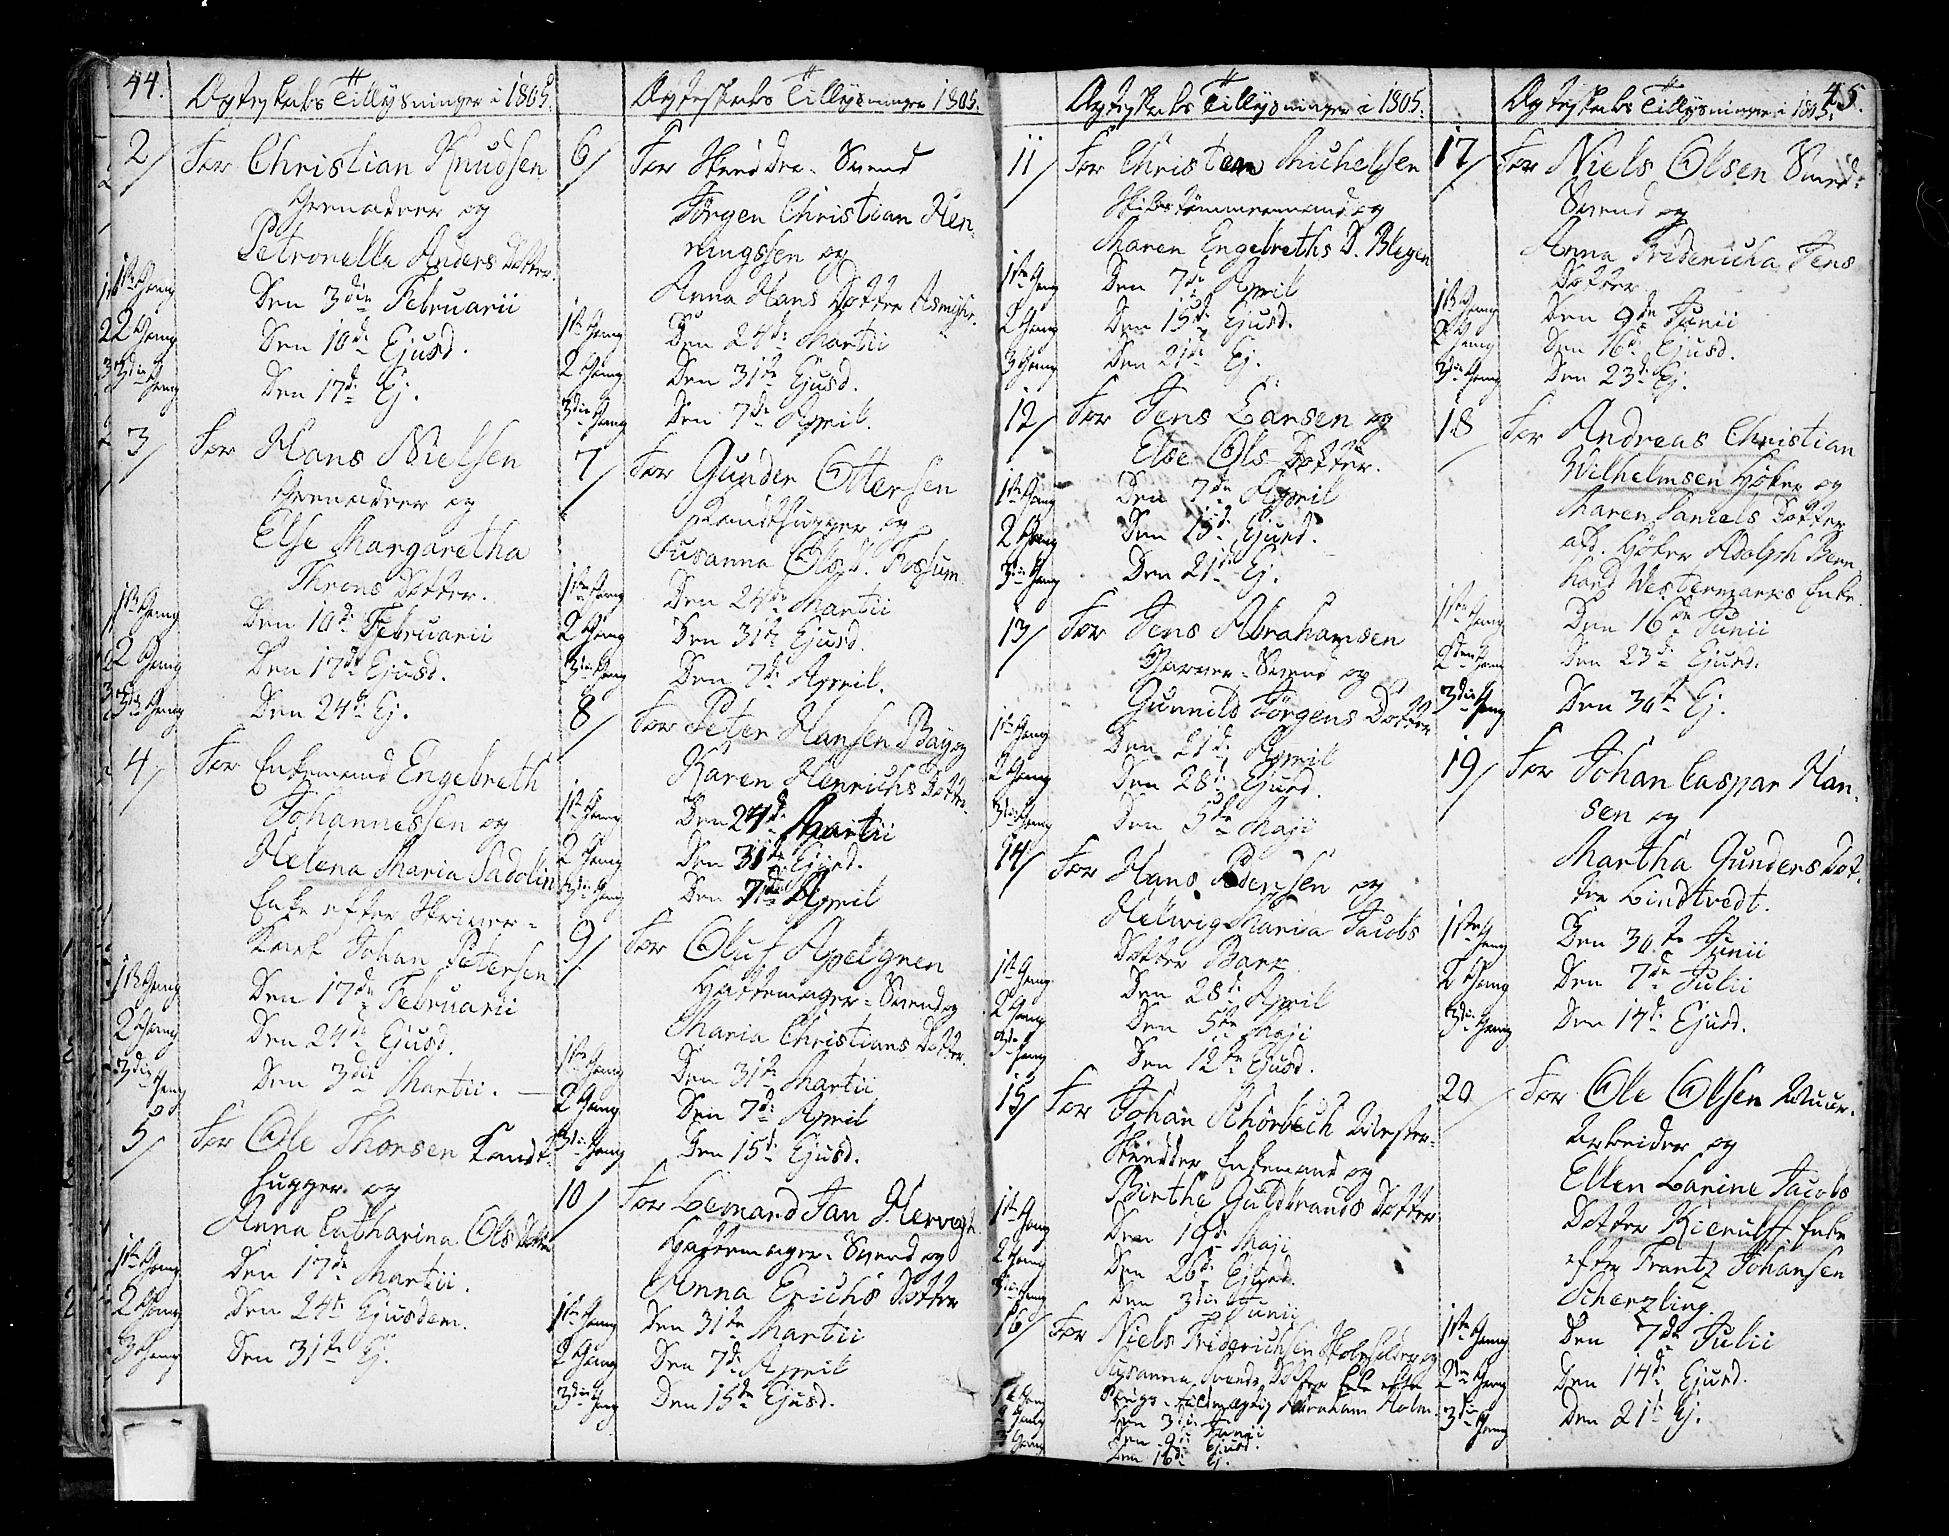 44.
Ægteskabs Tillysninger i 1805.
2/ For Christian Knudsen
Grenadeer og
Petronelle Anders Dotter.
1ste Gang Den 3die Februarii
2 Gang Den 10de Ejusd.
3die Gang Den 17de Ej.
3/ For Hans Nielsen
Grenadeer og
Else Margaretha
Throns Dotter.
1ste Gang Den 10de Februarii
2 Gang Den 17de Ejusd.
3die Gang Den 24de Ej.
4/ For Enkemand Engebreth
Johannessen og
Helena Maria Sadolin
Enke efter Skriver-
Karl Johan Petersen
1ste Gang Den 17de Februarii
2 Gang Den 24de Ejusd.
3die Gang Den 3die Martii.
5/ For Ole Thorsen Kandt-
hugger og
Anna Catharina Ols Dotter
1ste Gang Den 17de Martii.
2 Gang Den 24de Ejusdem.
3 Gang Den 31te Ej.
Ægteskabs Tillysninger 1805.
6/ For Skrædder-Svend
Jörgen Christian Hen-
ningssen og
Anna Hans Dotter Asmyhr.
1ste Gang Den 24de Martii
2 Gang Den 31te Ejusd.
3die Gang Den 7de April.
7/ For Gunder Ottersen
Kandthugger og
Susanna Ols D. Fossum
1ste Gang Den 24de Martii
2 Gang Den 31te Ejusd.
3die Gang Den 7de April.
8/ For Peter Hansen Bay og
Karen Henrichs Dotter
1ste Gang Den 24de Martii
2 Gang Den 31te Ejusd.
3die Gang Den 7de April
9/ For Oluf Apelgren
Hattemager-Svend og
Maria Christians Dotter.
1ste Gang Den 31te Martii
2 Gang Den 7de April
3die Gang Den 15de Ejusd.
10/ For Leonard Jan Hervegh
Hattemager-Svend og
Anna Erichs Dotter
1ste Gang Den 31te Martii
2 Gang Den 7de April
3die Gang Den 15de Ejusd.
Ægteskabs Tillysninger i 1805.
11/ For Christen Michelsen
Skibstömmermand og
Maren Engebreths D. Blegen
1ste Gang Den 7de April
2 Gang Den 15de Ejusd.
3 Gang Den 21de Ej.
12/ For Jens Larsen og
Else Ols Dotter.
1ste Gang Den 7de April
2 Gang Den 15de Ejusd.
3die Gang Den 21de Ej.
13/ For Jens Abrahamsen
Garver-Svend og
Gunnild Jörgens Dotter
1ste Gang Den 21de April
2 Gang Den 28de Ejusd.
3die Gang Den 5te Maji
14/ For Hans Pedersen og
Helwig Maria Jacobs
Dotter Bark
1ste Gang Den 28de April
2 Gang Den 5te Maji
3die Gang Den 12te Ejusd.
15/ For Johan Schörbech Mester-
Skrædder Enkemand og
Birthe Guldbrands Dotter
1ste Gang Den 19de Maji
2 Gang Den 26de Ejusd.
3die Gang Den 3die Junii
16/ For Niels Friderichsen Skoleholder og
Susanna Svends Dotter Enke efter
Abraham Holm.
1ste Gang Den 3die Junii
2 Gang Den 9de Ejusd.
3 Gang Den 16de Ej.
45.
Ægteskabs Tillysninger i 1805.
17/ For Niels Olsen Smed-
Svend og
Anna Fridericha Jens
Dotter
1ste Gang Den 9de Junii
2 Gang Den 16de Ejusd.
3die Gang Den 23de Ej.
18/ For Andreas Christian
Wilhelmsen Höker og
Maren Daniels Dotter
afd. Höker Adolph Bern-
hard Westermarks Enke.
1ste Gang Den 16de Junii
2den Gang Den 23de Ejusd.
3die Gang Den 30te Ej.
19/ For Johan Caspar Han-
sen og
Martha Gunders Dot-
ter Lindtvedt.
1ste Gang Den 30te Junii
2 Gang Den 7de Julii
3die Gang Den 14de Ejusd.
20/ For Ole Olsen Muur-
Arbeider og
Ellen Larine Jacobs
Dotter Kierulff Enke
efter Frantz Johansen
Scherzling.
1ste Gang Den 7de Julii
2den Gang Den 14de Ejusd.
3die Gang Den 21de Ej.